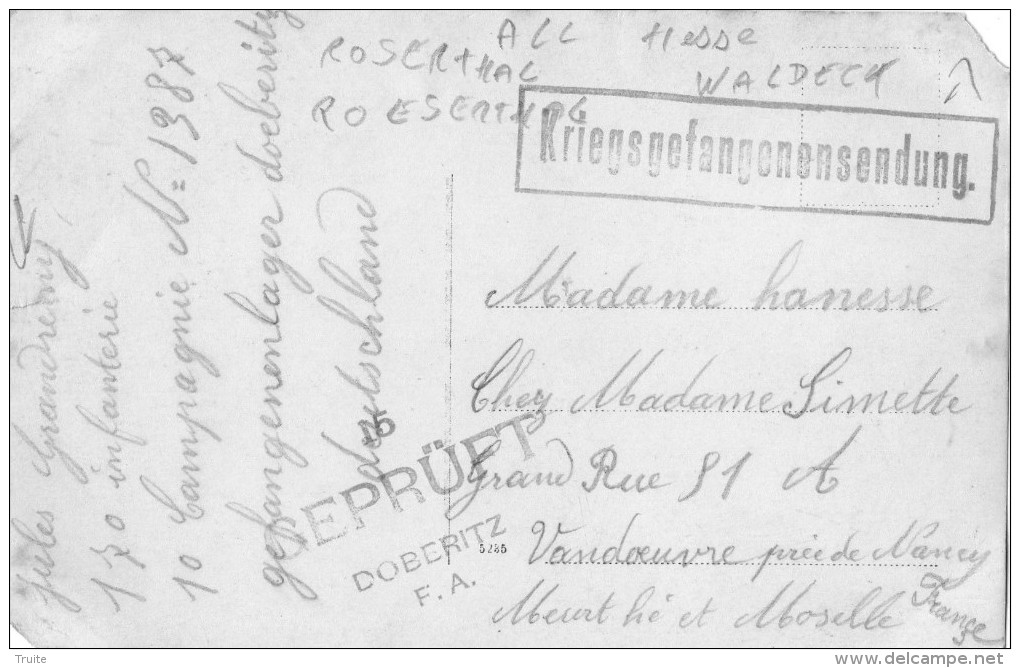 ALL Hesse
ROSERTHAL WALDECK
ROESERTHAL
Kriegsgefangenensendung.
Jules Grandrémy
170 infanterie
10 Campagnie N= 1387
gefangenenlager doeberitz
deutschland
15
GEPRÜFT
DOBERITZ
F. A.
5285
Madame hanesse
Chez Madame Simette
Grand Rue 51 A
Vandœuvre prée de Nancy
Meurt hé et Moselle
France
Truite
http://www.delcampe.net